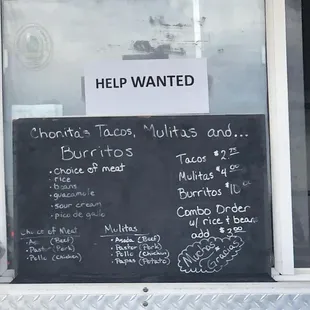 HELP WANTED
Chonita's Tacos, Mulitas and...
Burritos
• choice of meat
• rice
• beans
• guacamole
• sour cream
• pico de gallo
Tacos $2.75
Mulitas $4.00
Burritos $10.00
Combo Order
w/ rice & beans
add $3.00
Muchas
Gracias
Choice of Meat
(Beef)
Pastor (Pork)
Pollo (Chicken)
Mulitas
• Asada (Beef)
• Pastor (Pork)
• Pollo (Chicken)
• Papas (Potato)